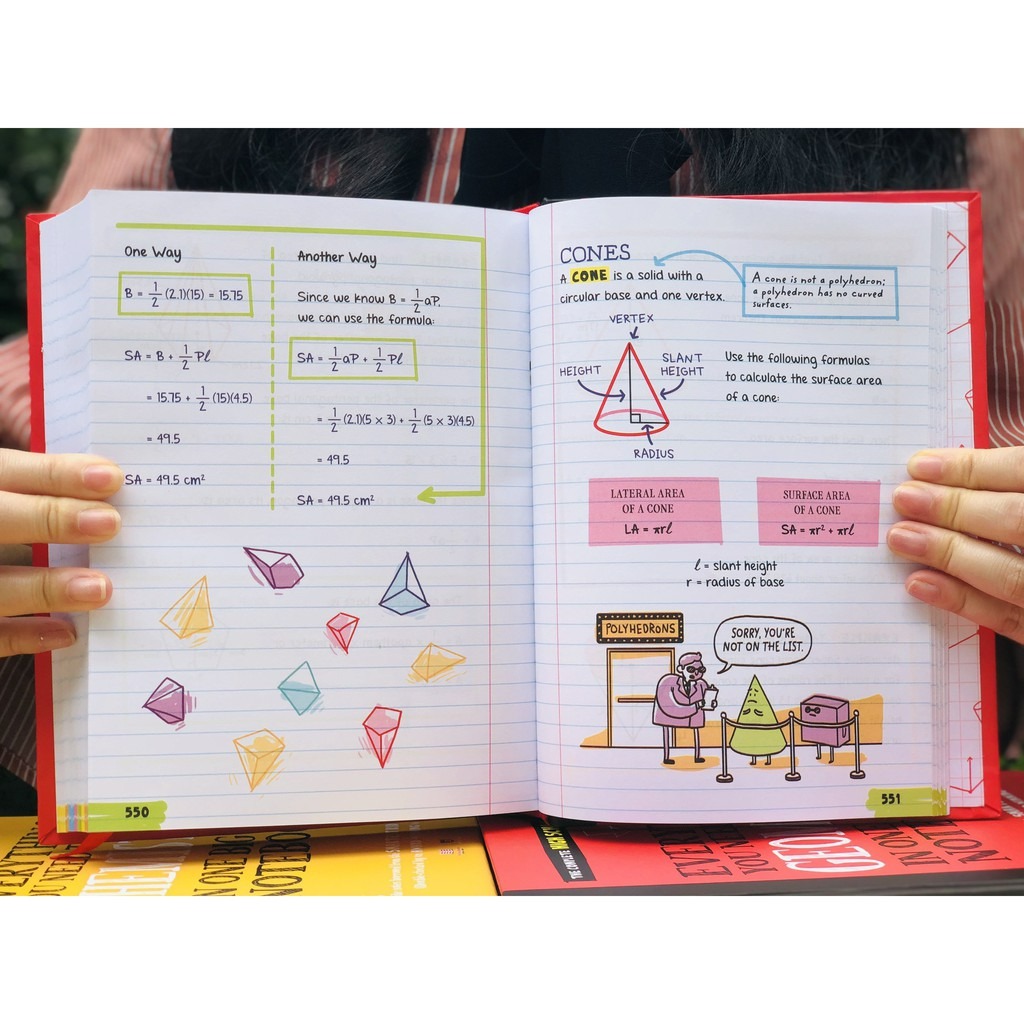 One Way
B = 1/2 (2.1)(15) = 15.75
SA = B + 1/2 Pℓ
= 15.75 + 1/2 (15)(4.5)
= 49.5
SA = 49.5 cm²
Another Way
Since we know B = 1/2 aP,
we can use the formula:
SA = 1/2 aP + 1/2 Pℓ
= 1/2 (2.1)(5 × 3) + 1/2 (5 × 3)(4.5)
= 49.5
SA = 49.5 cm²
550
CONES
A CONE is a solid with a
circular base and one vertex.
A cone is not a polyhedron;
a polyhedron has no curved
surfaces.
VERTEX
HEIGHT
SLANT
HEIGHT
RADIUS
Use the following formulas
to calculate the surface area
of a cone:
LATERAL AREA
OF A CONE
LA = πrℓ
SURFACE AREA
OF A CONE
SA = πr² + πrℓ
ℓ = slant height
r = radius of base
POLYHEDRONS
SORRY, YOU'RE
NOT ON THE LIST.
551
IN ONE BIG
THE COMPLETE